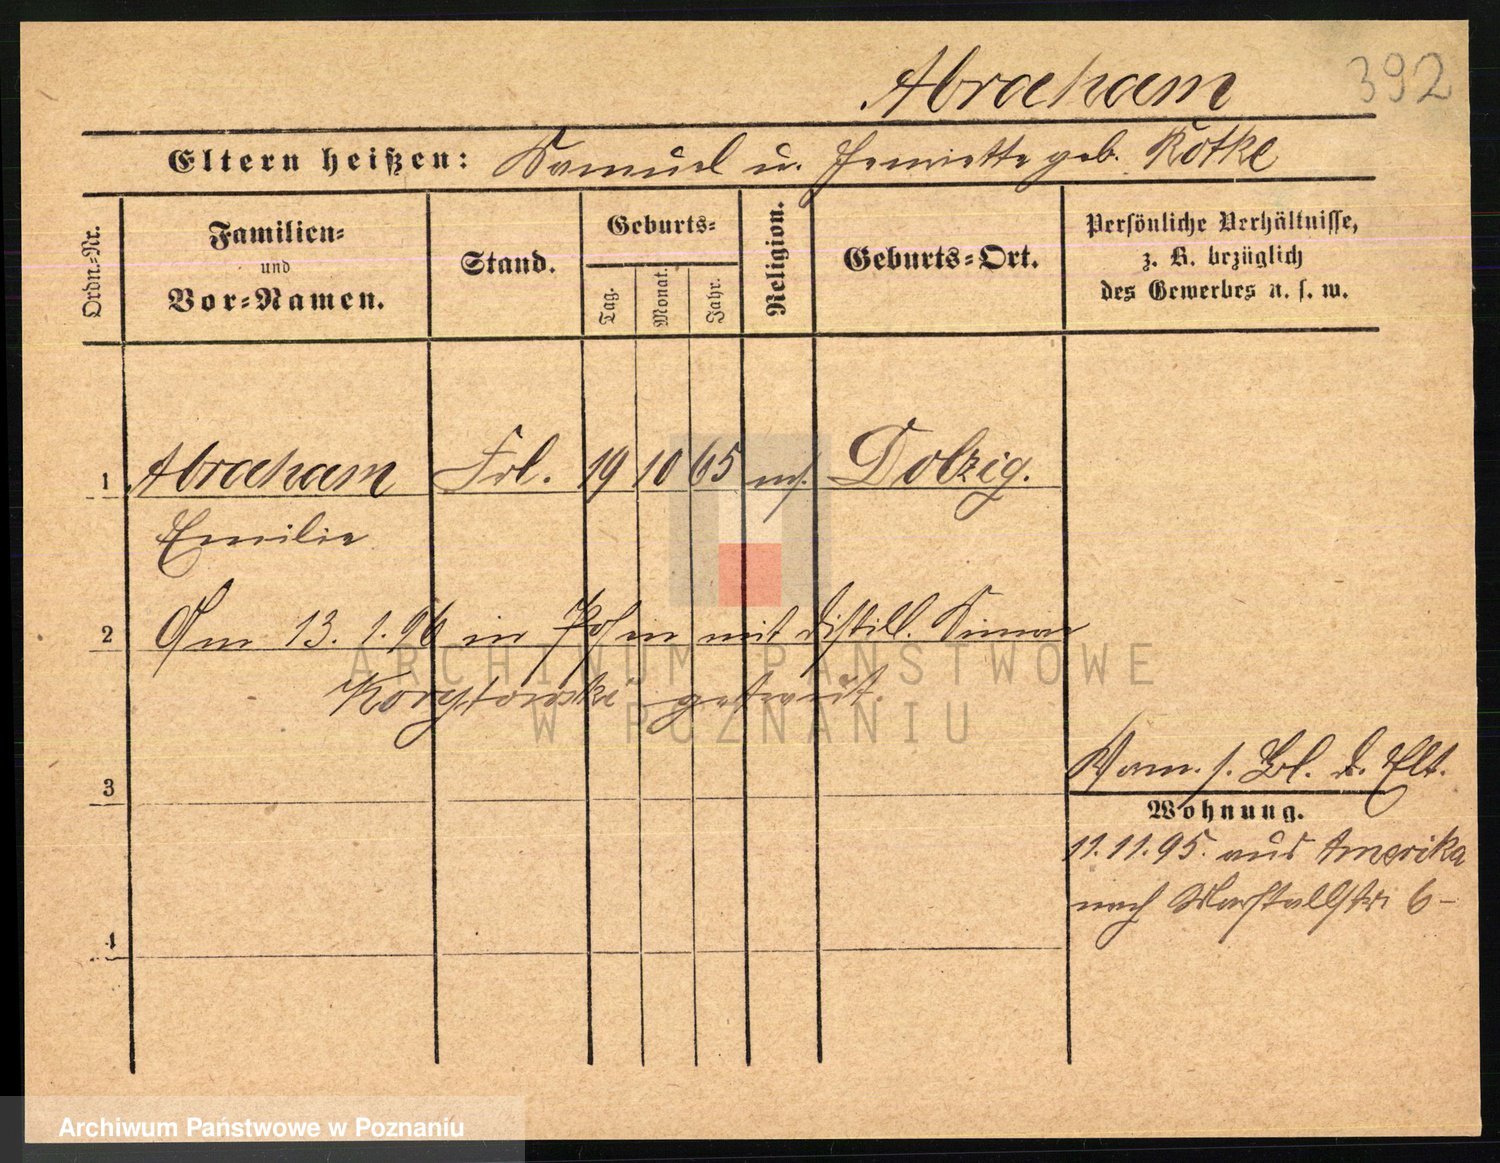 Abraham 392
Eltern heißen: Samuel u. Henriette geb. Kotke
Ordn.-Nr.
Familien-
und
Vor-Namen.
Stand.
Geburts-
Tag.
Monat.
Jahr.
Religion.
Geburts-Ort.
Persönliche Verhältnisse,
z. B. bezüglich
des Gewerbes u. s. w.
1 Abraham Frl. 19 10 65 mos. Dolzig.
Emilie
2 Am 13.1.96 in Posen mit Distill. Simon
Korytowski getraut.
3
Vorm. s. Bl. d. Elt.
Wohnung.
11.11.95. aus Amerika
nach Marstallstr. 6-
4
ARCHIWUM PAŃSTWOWE
W POZNANIU
Archiwum Państwowe w Poznaniu